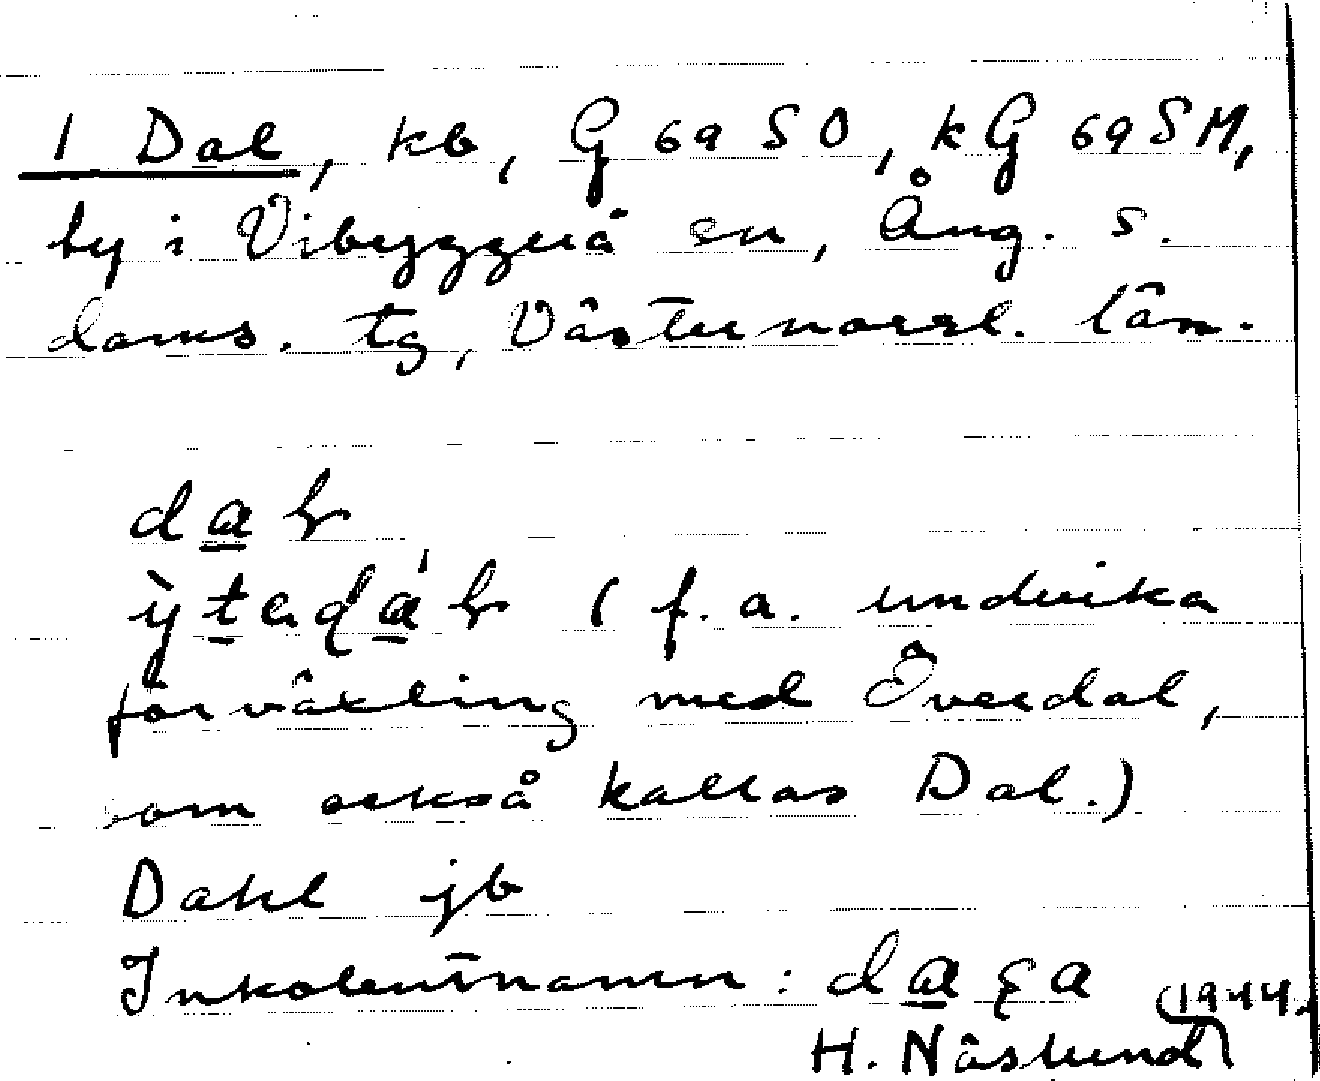 1 Dal, kb, G 69 SO, kG 69 SM,
by i Vibyggerå sn, Ång. s.
doms. tg, Västernorrl. län.
(f.a. undvika
förväxling med Överdal,
som också kallas Dal.)
Dahl jb
Inkolentnamn:
(1944.
H. Näslund